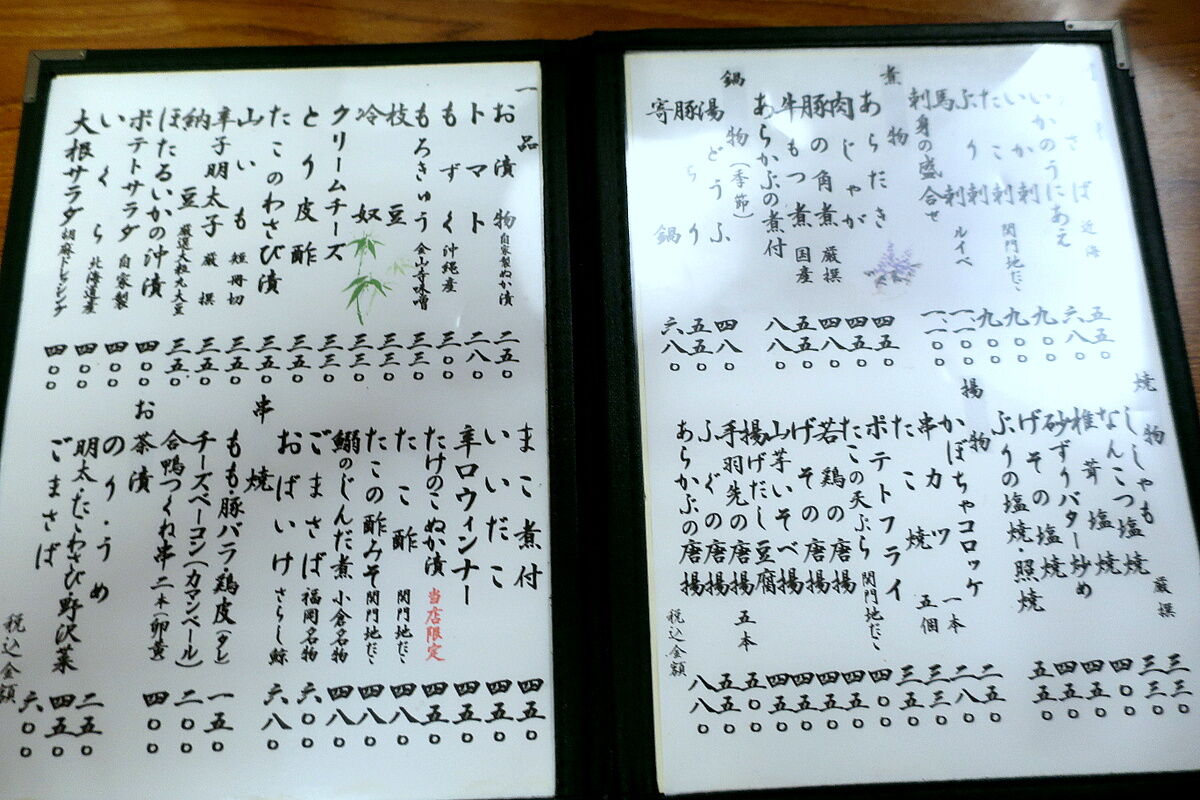 さば 近海 五五〇
いかのうにあえ 六八〇
いか刺 九〇〇
たこ刺 関門地だこ 九〇〇
ぶり刺 九〇〇
馬刺 ルイベ 一、一〇〇
刺身の盛合せ 一、一〇〇
煮物
あらだき 四五〇
肉じゃが 四五〇
豚の角煮 厳撰 四八〇
牛もつ煮 国産 五五〇
あらかぶの煮付 八八〇
鍋物(季節)
湯どうふ 四八〇
豚ちり 五五〇
寄鍋 六八〇
焼物
ししゃも 厳撰 三三〇
なんこつ塩焼 三三〇
椎茸塩焼 四〇〇
砂ずりバター炒め 四五〇
げその塩焼 四五〇
ぶりの塩焼・照焼 五五〇
揚物
かぼちゃコロッケ 二五〇
串カツ 一本 二八〇
たこ焼 五個 三三〇
ポテトフライ 三五〇
たこの天ぷら 関門地だこ 四〇〇
若鶏の唐揚 四五〇
げその唐揚 四五〇
山芋いそべ揚 四五〇
揚げだし豆腐 四八〇
手羽先の唐揚 五本 五〇〇
ふぐの唐揚 五五〇
あらかぶの唐揚 八八〇
税込金額
一品
お漬物 自家製ぬか漬 二五〇
トマト 二八〇
もずく 沖縄産 三〇〇
もろきゅう 金山寺味噌 三三〇
枝豆 三三〇
冷奴 三三〇
クリームチーズ 三三〇
とり皮酢 三五〇
たこのわさび漬 三五〇
山いも 短冊切 三五〇
辛子明太子 厳撰 三五〇
納豆 厳選大粒丸大豆 三五〇
ほたるいかの沖漬 四〇〇
ポテトサラダ 自家製 四〇〇
いくら 北海道産 四〇〇
大根サラダ 胡麻ドレッシング 四〇〇
まこ煮付 四五〇
いいだこ 四五〇
辛口ウィンナー 四五〇
たけのこぬか漬 当店限定 四五〇
たこ酢 関門地だこ 四八〇
たこの酢みそ 関門地だこ 四八〇
鰯のじんだ煮 小倉名物 四八〇
ごまさば 福岡名物 六〇〇
おばいけ さらし鯨 六八〇
串焼
もも・豚バラ・鶏皮(タレ) 一五〇
チーズベーコン(カマンベール) 二〇〇
合鴨つくね串 二本(卵黄) 四〇〇
お茶漬
のり・うめ 二五〇
明太・たこわさび・野沢菜 四五〇
ごまさば 六〇〇
税込金額